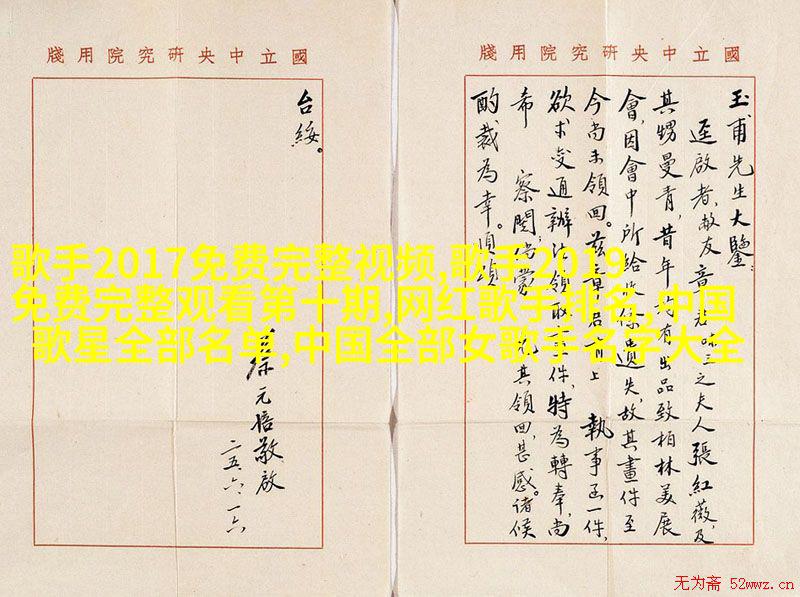 國立中央研究院用牋
玉甫先生大鑒:
逕啟者,敝友章君味三之夫人張紅薇,及
其甥曼青,昔年均有出品致柏林美展
會,因會中所給收條遺失,故其畫件至
今尚未領回。茲章君前上 執事函一件,
欲求變通辦法領取畫件,特為轉奉,尚
希 察閱,尚蒙 允其領回,甚感。諸候
酌裁為幸。順頌
國立中央研究院用牋
台綏。
元培敬啟
二五、六、一六
歌手2017免费完整视频,歌手2019
免费完整观看第十期,网红歌手排名,中国
歌星全部名单,中国全部女歌手名字大全
无为斋 52wwz.cn